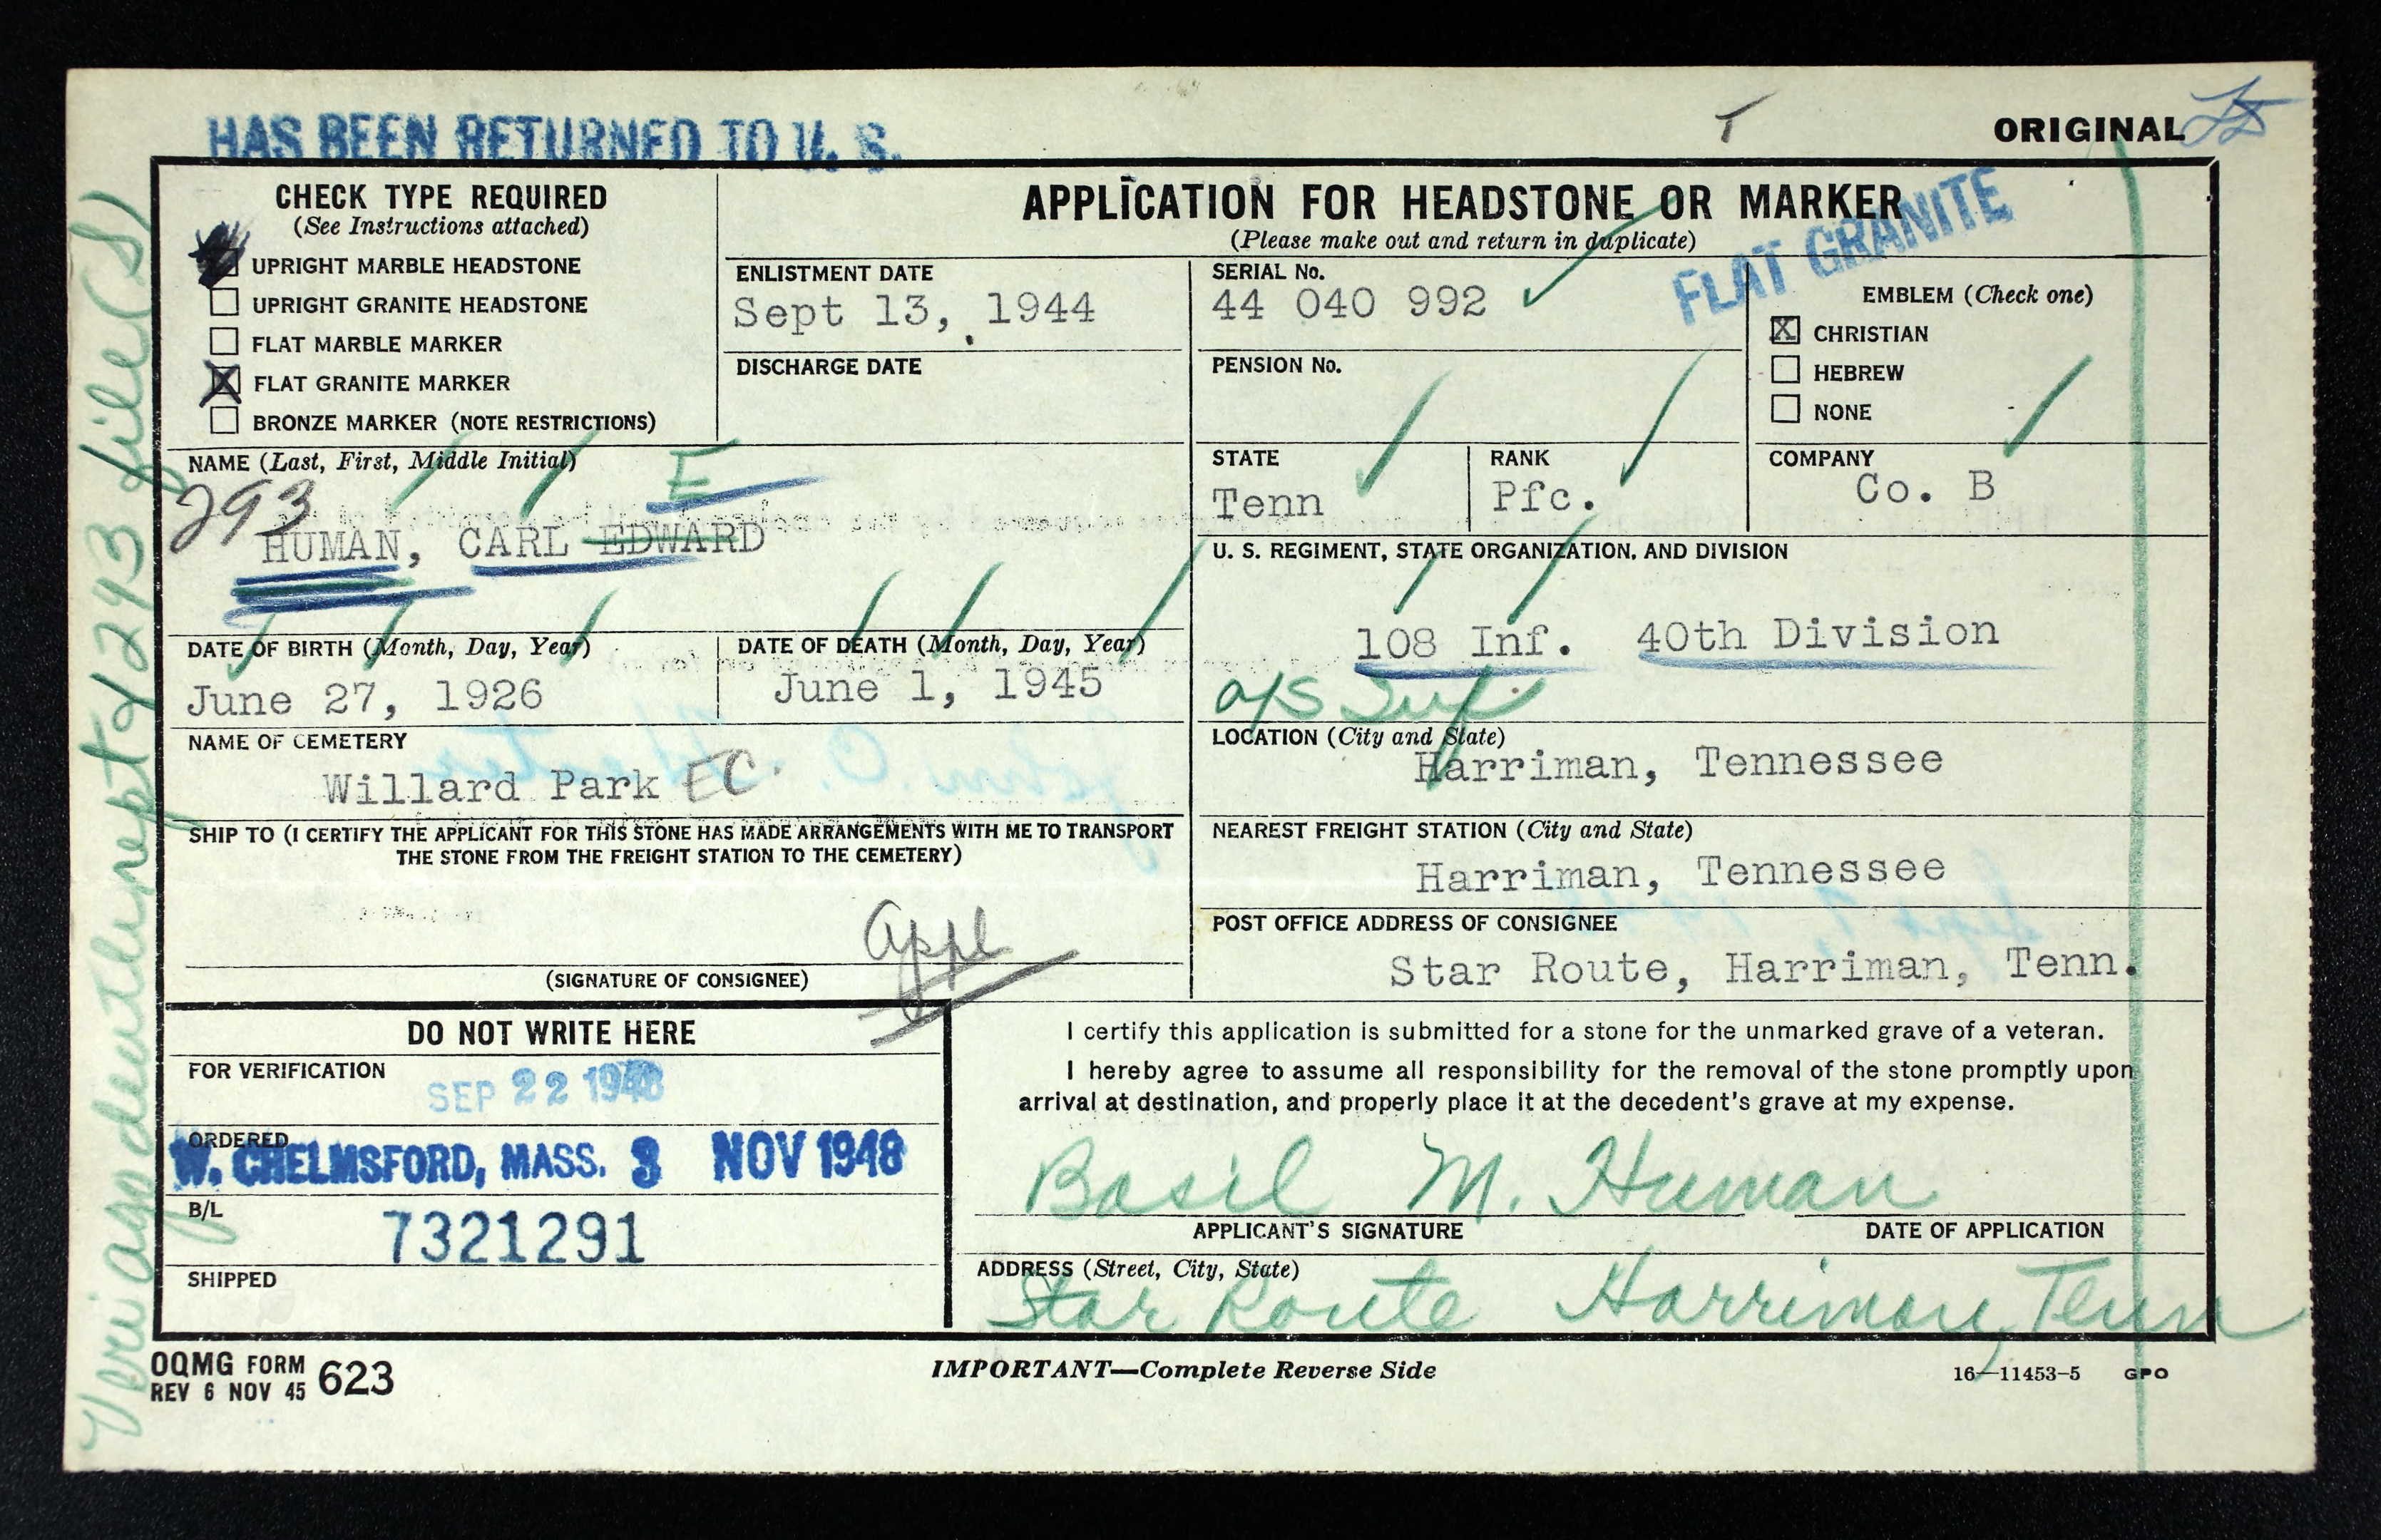 HAS BEEN RETURNED TO U. S.
T
ORIGINAL
CHECK TYPE REQUIRED
(See Instructions attached)
UPRIGHT MARBLE HEADSTONE
UPRIGHT GRANITE HEADSTONE
FLAT MARBLE MARKER
X FLAT GRANITE MARKER
BRONZE MARKER (NOTE RESTRICTIONS)
APPLICATION FOR HEADSTONE OR MARKER
(Please make out and return in duplicate)
FLAT GRANITE
ENLISTMENT DATE
Sept 13, 1944
DISCHARGE DATE
SERIAL No.
44 040 992
PENSION No.
EMBLEM (Check one)
X CHRISTIAN
HEBREW
NONE
NAME (Last, First, Middle Initial)
E
293
HUMAN, CARL EDWARD
STATE
Tenn
RANK
Pfc.
COMPANY
Co. B
U. S. REGIMENT, STATE ORGANIZATION, AND DIVISION
108 Inf. 40th Division
a/s Inf
DATE OF BIRTH (Month, Day, Year)
June 27, 1926
DATE OF DEATH (Month, Day, Year)
June 1, 1945
NAME OF CEMETERY
Willard Park EC
LOCATION (City and State)
Harriman, Tennessee
SHIP TO (I CERTIFY THE APPLICANT FOR THIS STONE HAS MADE ARRANGEMENTS WITH ME TO TRANSPORT
THE STONE FROM THE FREIGHT STATION TO THE CEMETERY)
appl
(SIGNATURE OF CONSIGNEE)
NEAREST FREIGHT STATION (City and State)
Harriman, Tennessee
POST OFFICE ADDRESS OF CONSIGNEE
Star Route, Harriman, Tenn.
DO NOT WRITE HERE
FOR VERIFICATION
SEP 22 1948
ORDERED
W. CHELMSFORD, MASS. 3 NOV 1948
B/L
7321291
SHIPPED
I certify this application is submitted for a stone for the unmarked grave of a veteran.
I hereby agree to assume all responsibility for the removal of the stone promptly upon
arrival at destination, and properly place it at the decedent's grave at my expense.
Basil M. Human
APPLICANT'S SIGNATURE
DATE OF APPLICATION
ADDRESS (Street, City, State)
Star Route Harriman, Tenn
OQMG FORM 623
REV 6 NOV 45
IMPORTANT—Complete Reverse Side
16—11453-5 GPO
Veri ago death rept & 293 file (S)